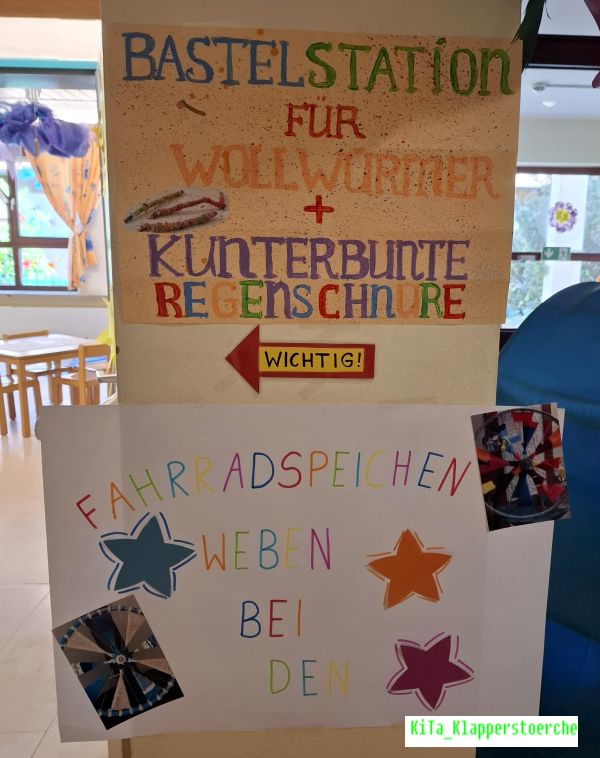 BASTELSTATION
FÜR
WOLLWÜRMER
+
KUNTERBUNTE
REGENSCHNÜRE
WICHTIG!
FAHRRADSPEICHEN
WEBEN
BEI
DEN
KiTa_Klapperstoerche